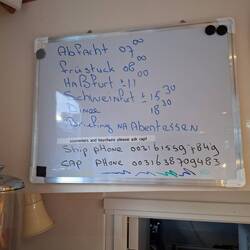 Abfacht 07 00
früstuck 08 00
Haßfurt ± 11
Schweinfut ± 15,30
Dinee 18 30
Briefing NA Abentessen
Ship phone
CAP phone 0031638709483